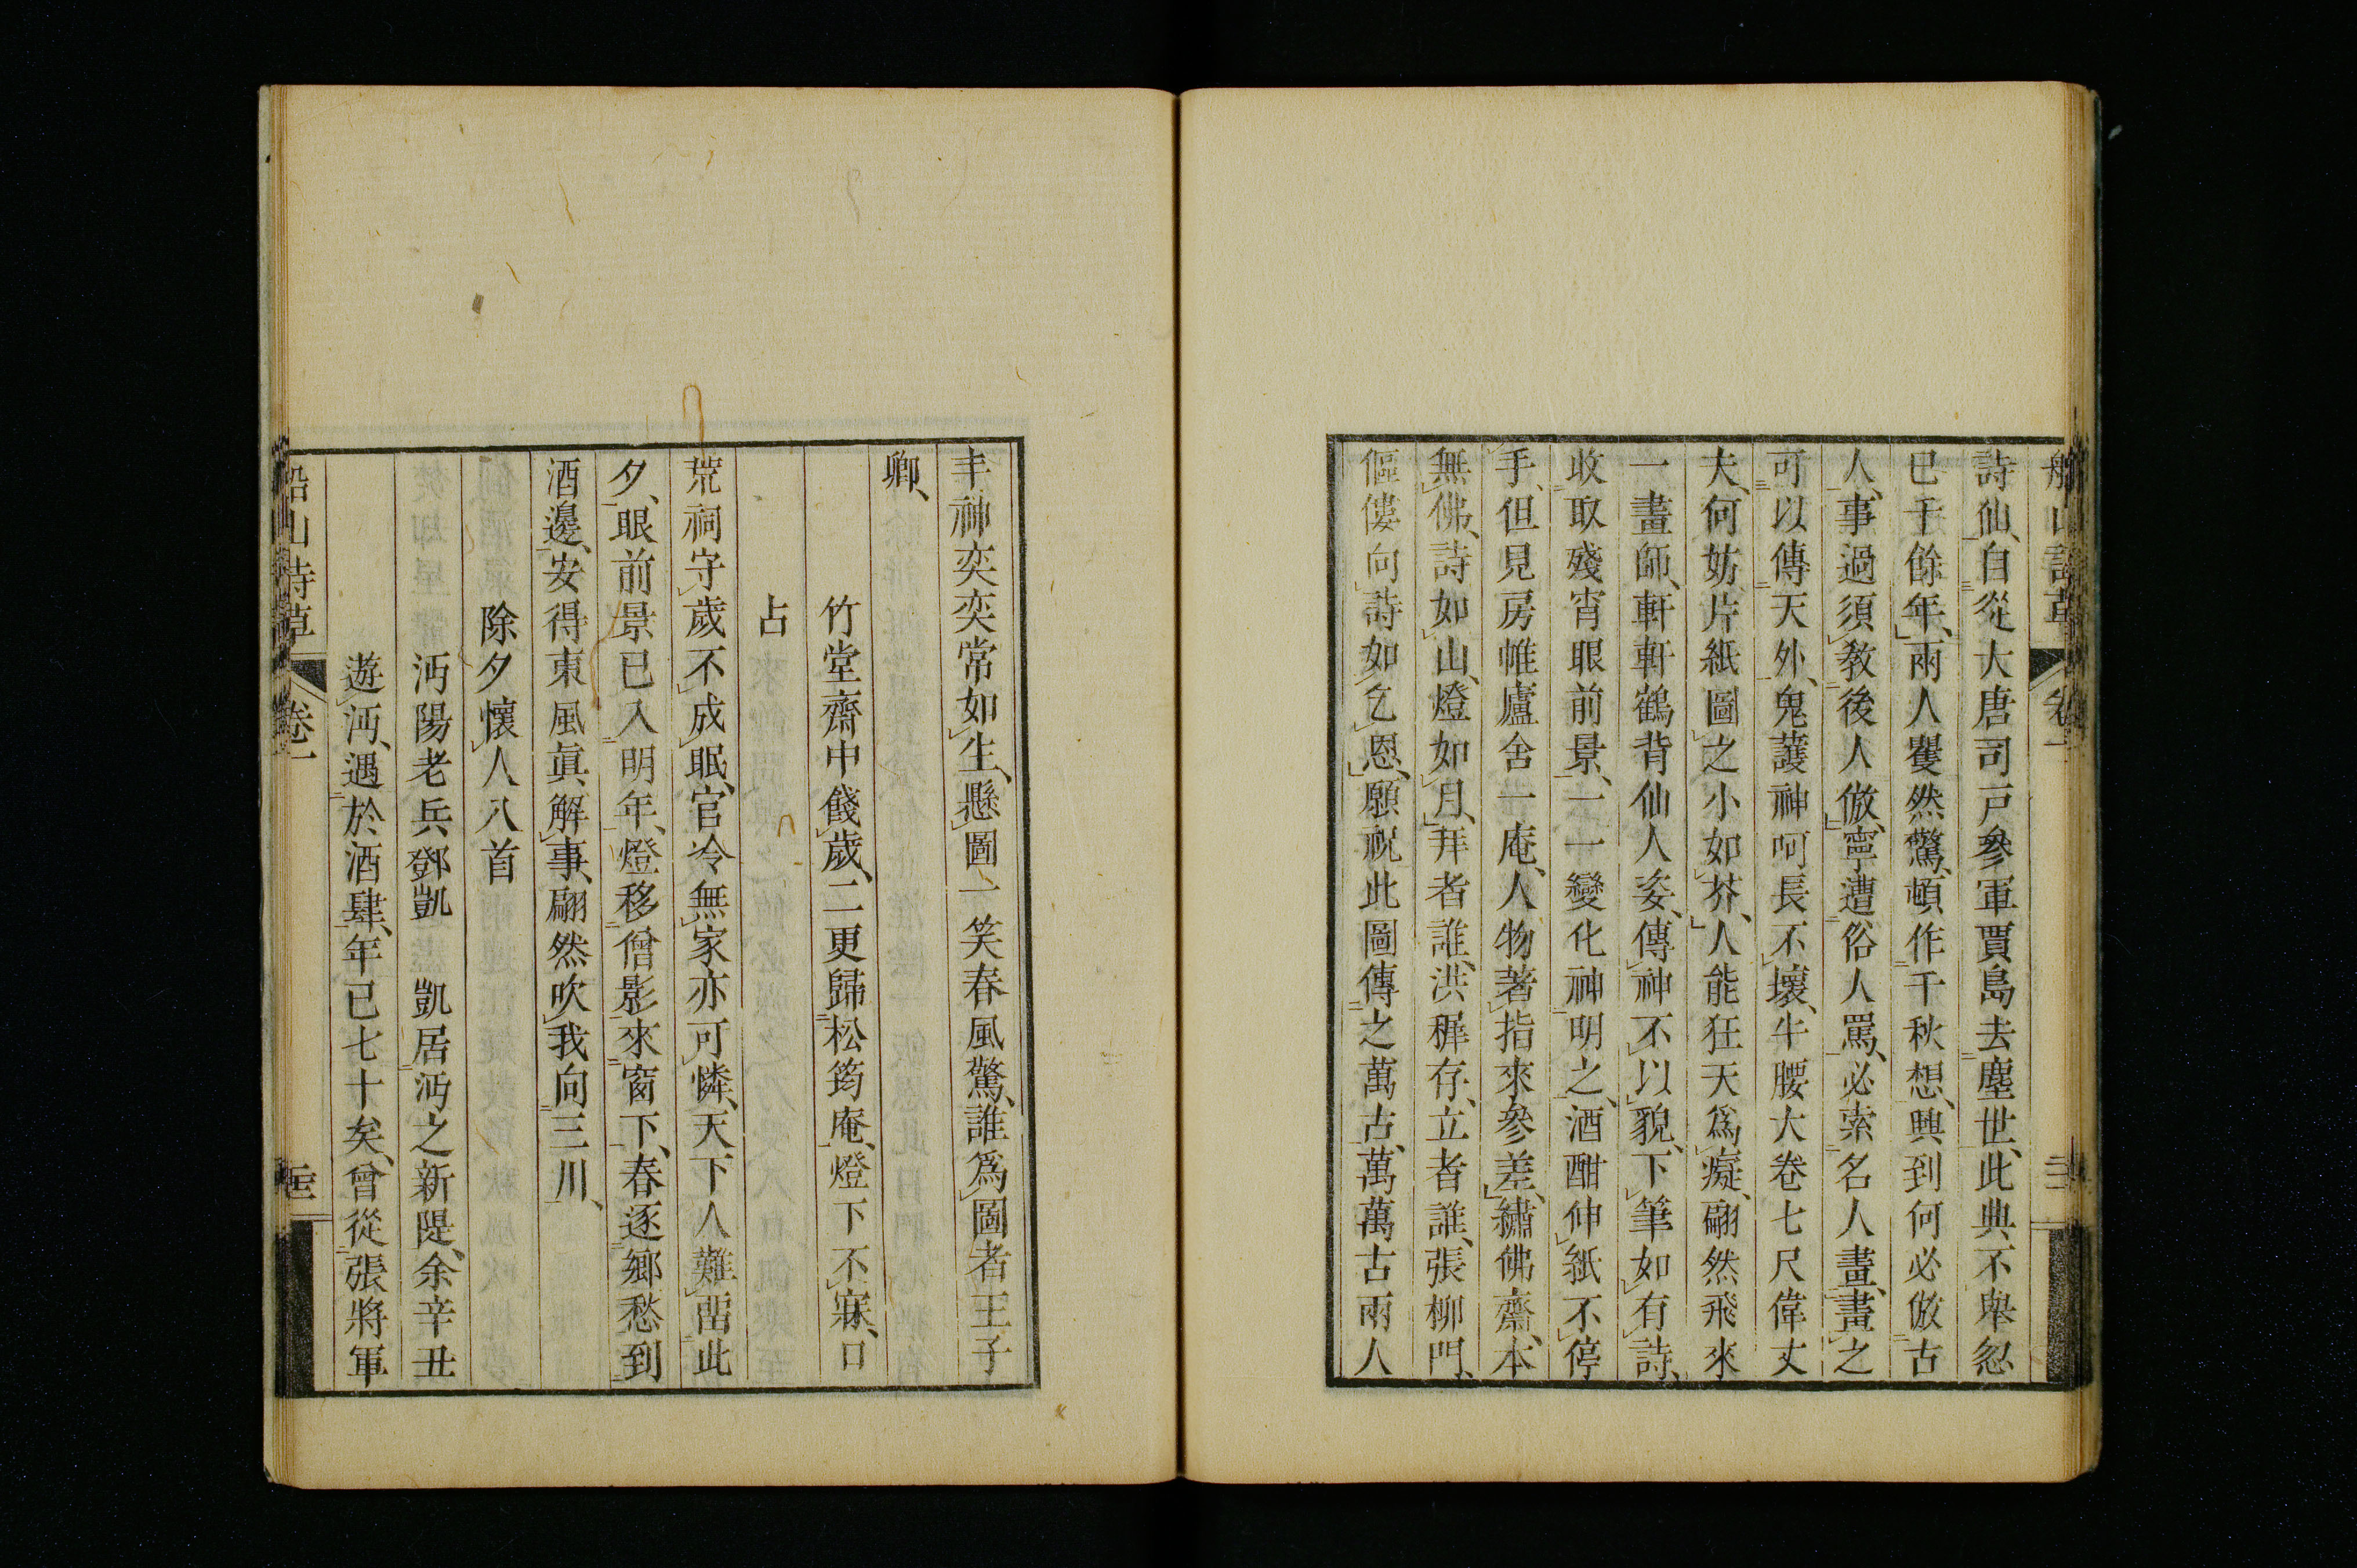 船山詩草 卷一
詩仙、自從大唐司戸參軍賈島去塵世、此典不舉忽
已千餘年、兩人矍然驚、頓作千秋想、興到何必倣古
人、事過須敎後人倣、寧遭俗人罵、必索名人畫、畫之
可以傳天外、鬼護神呵長不壞、牛腰大卷七尺偉丈
夫、何妨片紙圖之小如芥、人能狂天爲癡、翩然飛來
一畫師、軒軒鶴背仙人姿、傳神不以貌、下筆如有詩、
收取殘宵眼前景、一一變化神明之、酒酣伸紙不停
手、但見房帷廬舍一庵、人物著指來參差、繡佛齋、本
無佛、詩如山、燈如月、拜者誰、洪稺存、立者誰、張柳門、
傴僂向詩如乞恩、願祝此圖傳之萬古、萬萬古兩人
丰神奕奕常如生、懸圖一笑春風驚、誰爲圖者王子
卿、
竹堂齋中餞歲、二更歸松筠庵、燈下不寐、口
占
荒祠守歲不成眠、官冷無家亦可憐、天下人難畱此
夕、眼前景已入明年、燈移僧影來窗下、春逐鄉愁到
酒邊、安得東風眞解事、翩然吹我向三川、
除夕懷人八首
沔陽老兵鄧凱 凱居沔之新隄、余辛丑
遊沔、遇於酒肆、年已七十矣、曾從張將軍
船山詩草 卷一